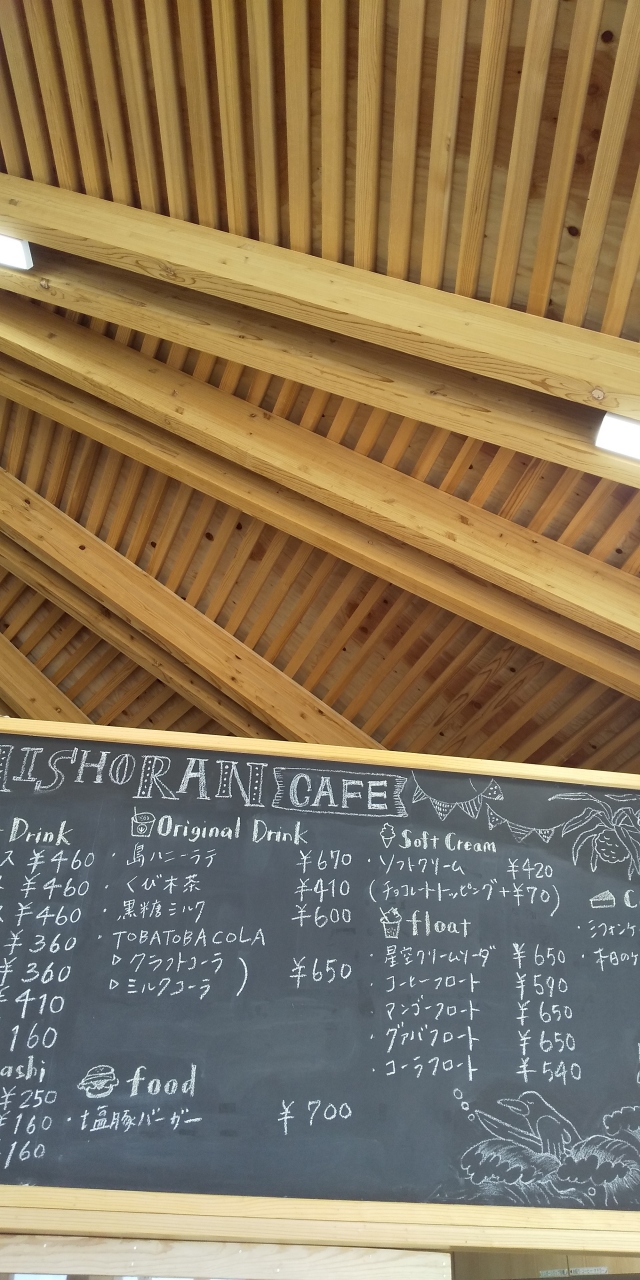 ISHORAN CAFE
Drink
ス ¥460
¥460
ス ¥460
¥360
¥360
¥410
160
ashi
¥250
¥160
160
Original Drink
・島ハニーラテ ¥670
・くび木茶 ¥410
・黒糖ミルク ¥600
・TOBATOBA COLA
▷クラフトコーラ
▷ミルクコーラ ) ¥650
food
・塩豚バーガー ¥700
Soft Cream
・ソフトクリーム ¥420
(チョコレートトッピング+¥70)
float
・星空クリームソーダ ¥650
・コーヒーフロート ¥590
・マンゴーフロート ¥650
・グァバフロート ¥650
・コーラフロート ¥540
C
・シフォンケ
・本日のケ